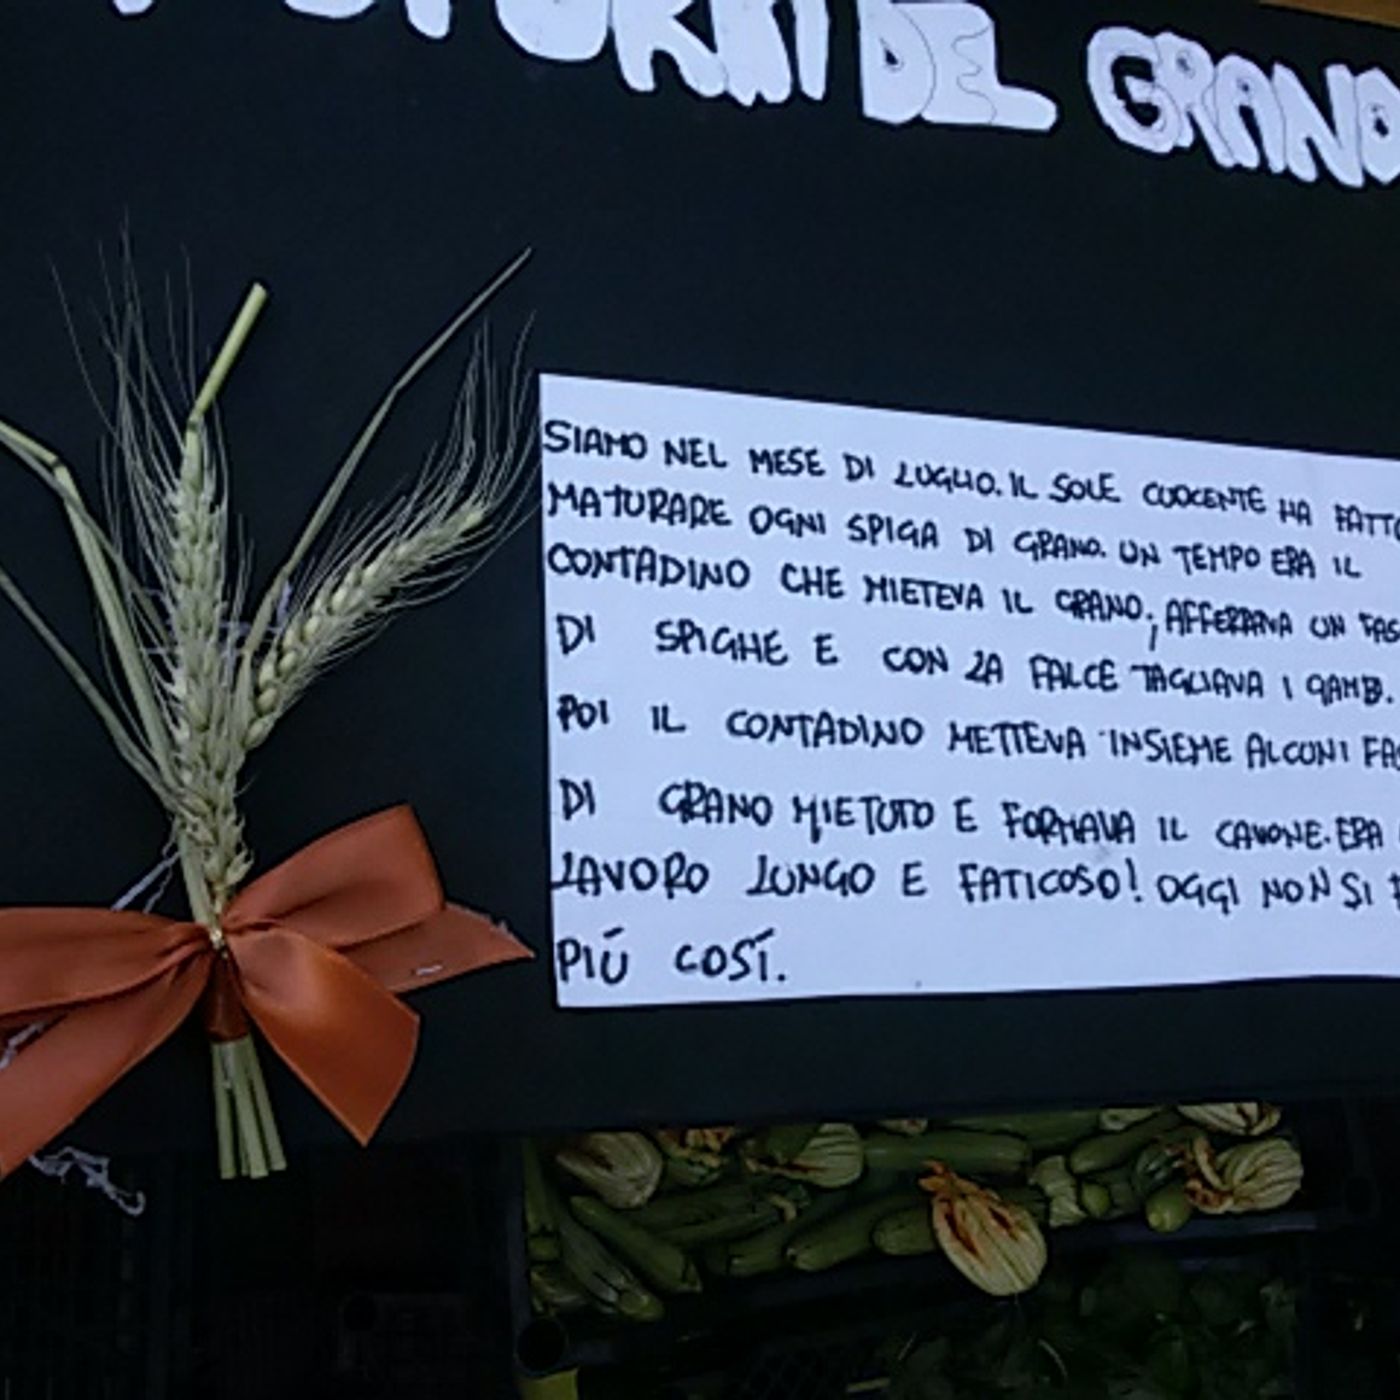 DEL GRANO
SIAMO NEL MESE DI LUGLIO. IL SOLE CUOCENTE HA FATTO
MATURARE OGNI SPIGA DI GRANO. UN TEMPO ERA IL
CONTADINO CHE MIETEVA IL GRANO; AFFERRAVA UN FAS
DI SPIGHE E CON LA FALCE TAGLIAVA I GAMB.
POI IL CONTADINO METTEVA INSIEME ALCUNI FAS
DI GRANO MIETUTO E FORMAVA IL CAVONE. ERA
LAVORO LUNGO E FATICOSO! OGGI NON SI
PIÚ COSÍ.